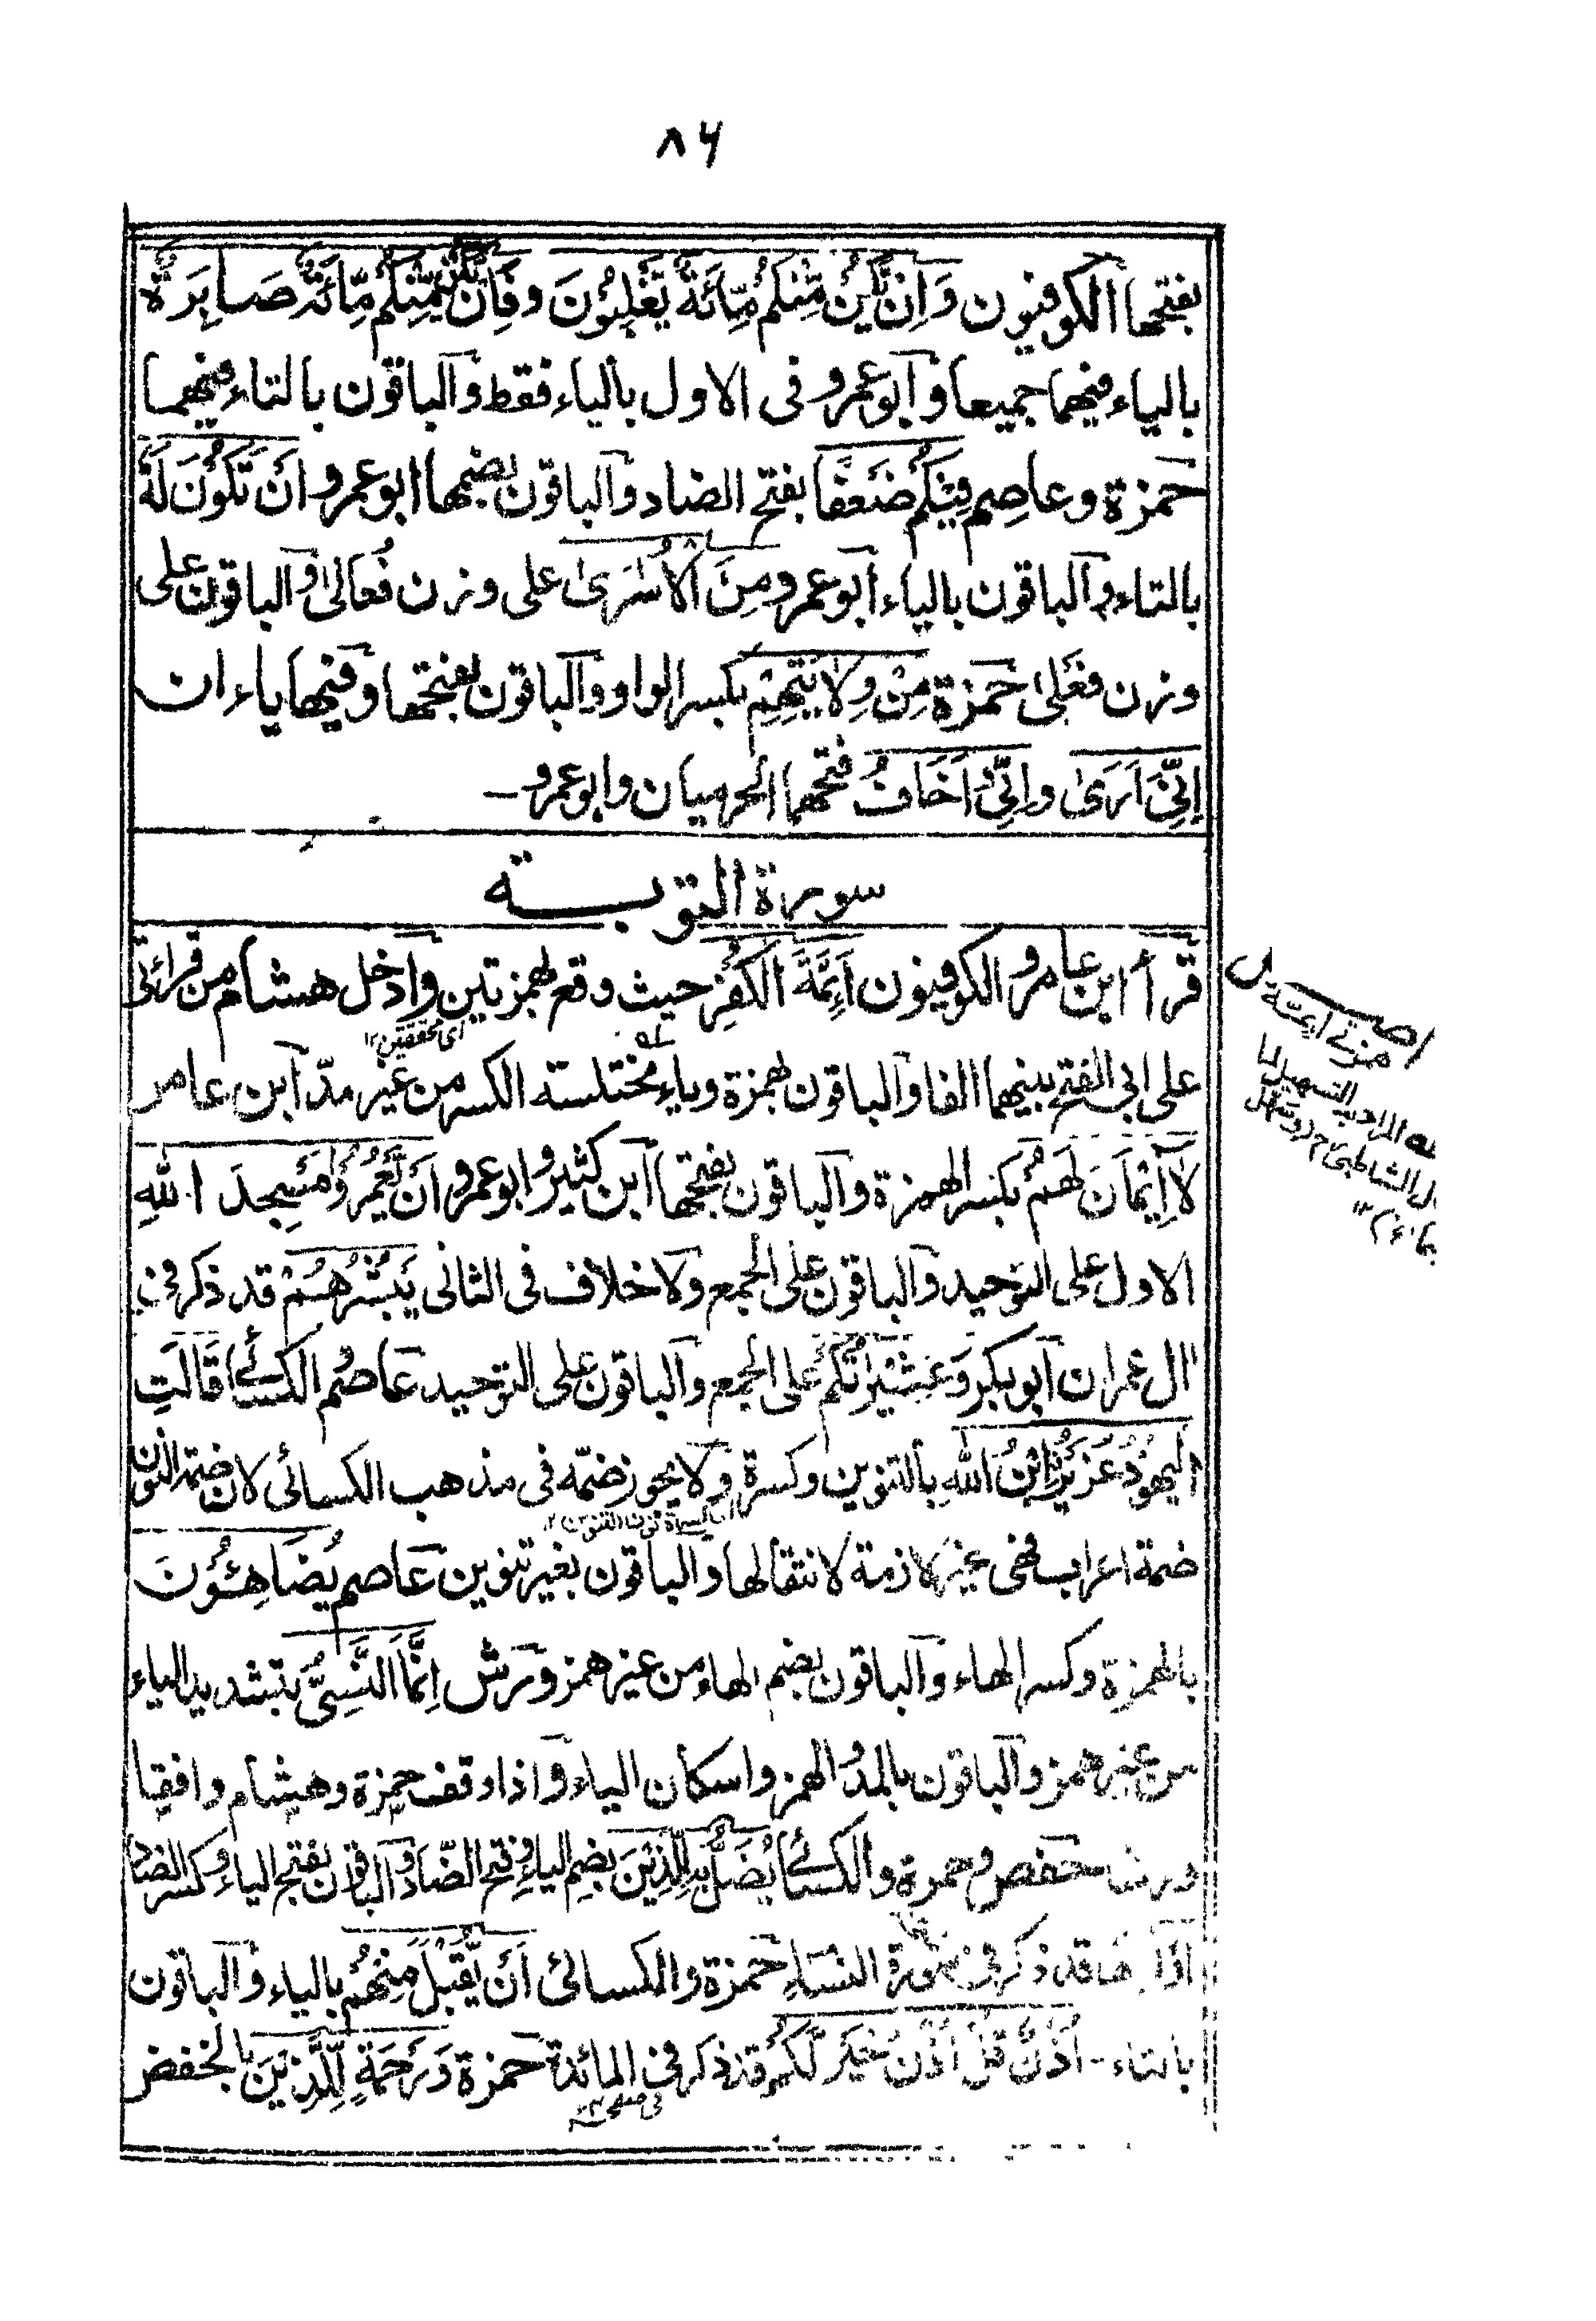 ٨٦
بفتحها الكوفيون وَاِنْ يَّكُنْ مِّنْكُمْ مِّائَةٌ يَّغْلِبُوْنَ وفَاِنْ يَّكُنْ مِّنْكُمْ مِّائَةٌ صَابِرَةٌ
بالياء فيهما جميعا وابو عمرو فى الاول بالياء فقط والباقون بالتاء فيهما
حمزة وعاصم فِيْكُمْ ضَعْفًا بفتح الضاد والباقون بضمها ابو عمرو اَنْ تَكُوْنَ لَهٗ
بالتاء والباقون بالياء ابو عمرو مِنَ الْاُسٰرٰى على وزن فُعَالٰى والباقون على
وزن فَعْلٰى حمزة مِنْ وِلَايَتِهِمْ بكسر الواو والباقون بفتحها وفيها ياء ان
اِنِّىَ اَرٰى واِنِّىَ اَخَافُ فتحهما الحرميان وابو عمرو ــ
سورة التوبــة
قرأ ابن عامر والكوفيون اَئِمَّةَ الْكُفْرِ حيث وقع بهمزتين وادخل هشام من قرائتى
اى محققتين ١٢
على ابى الفتح بينهما الفا والباقون بهمزة وياء مختلسته الكسر من غير مدّ ابن عامر
لَا اِيْمَانَ لَهُمْ بكسر الهمزة والباقون بفتحها ابن كثير وابو عمرو اَنْ يَّعْمُرُوْا مَسْجِدَ اللهِ
الاول على التوحيد والباقون على الجمع ولا خلاف فى الثانى يَبْشُرُهُمْ قد ذكر فى
ال عمران ابو بكر وَعَشِيْرَاتُكُمْ على الجمع والباقون على التوحيد عاصم والكسائى قَالَتِ
الْيَهُوْدُ عُزَيْرٌ ابْنُ اللهِ بالتنوين وكسرة ولا يجوز ضمّه فى مذهب الكسائى لان ضمة النون
اى كسرة نون التنوين ١٢
ضمة اعراب فهى غير لازمة لانتقالها والباقون بغير تنوين عاصم يُضَاهِئُوْنَ
بالهمزة وكسر الهاء والباقون بضم الهاء من غير همز ورش اِنَّمَا النَّسِىُّ بتشديد الياء
من غير همز والباقون بالمد والهمز واسكان الياء واذا وقف حمزة وهشام وافقا
ورشا حفص وحمزة والكسائى يُضَلُّ بِهِ الَّذِيْنَ بضم الياء وفتح الضاد والباقون بفتح الياء وكسر الضاد
قد ذكر فى سورة النساء حمزة والكسائى اَنْ يُّقْبَلَ مِنْهُمْ بالياء والباقون
بالتاء ــ اُذُنٌ قُلْ اُذُنُ خَيْرٍ لَّكُمْ قد ذكر فى المائدة حمزة وَرَحْمَةٍ لِّلَّذِيْنَ بالخفض